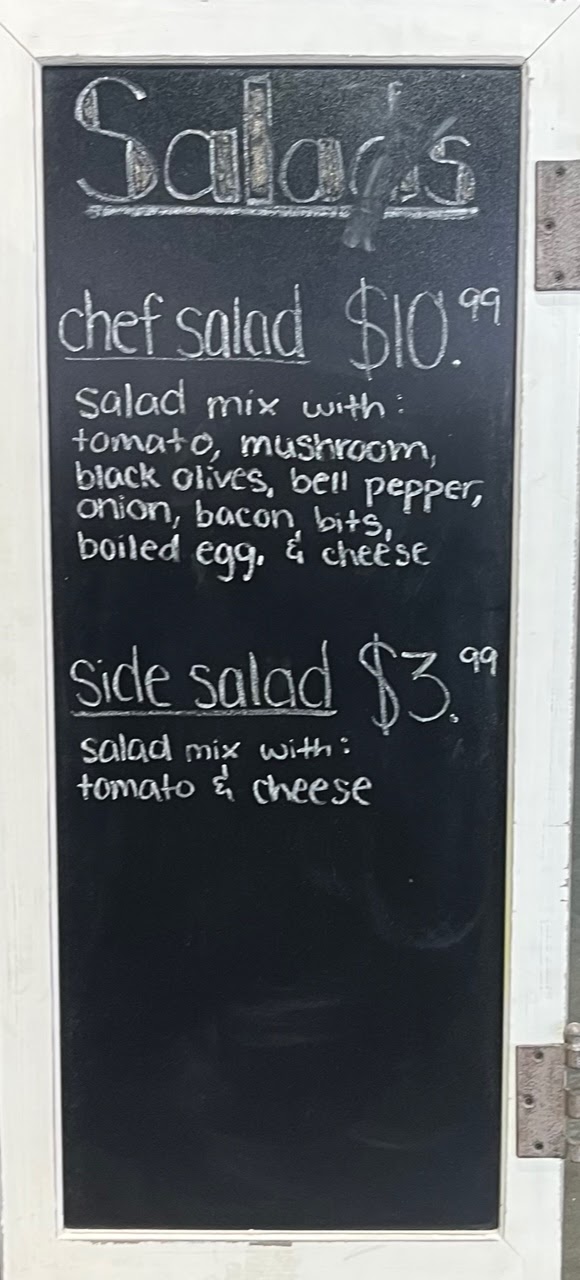 Salads
chef salad $10.99
salad mix with:
tomato, mushroom,
black olives, bell pepper,
onion, bacon bits,
boiled egg, & cheese
side salad $3.99
salad mix with:
tomato & cheese